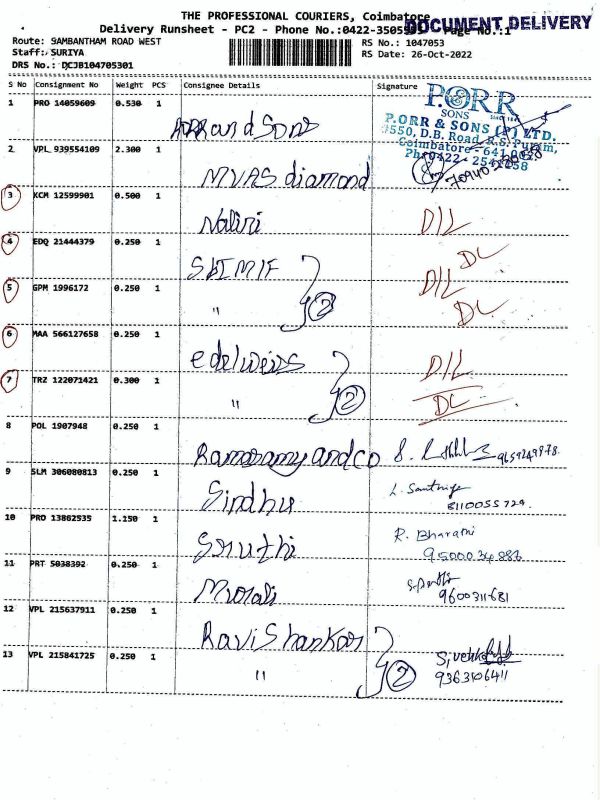 THE PROFESSIONAL COURIERS, Coimbatore
DOCUMENT DELIVERY
Delivery Runsheet - PC2 - Phone No.:0422-3505995 Page No.:1
Route: SAMBANTHAM ROAD WEST
RS No.: 1047053
Staff: SURIYA
RS Date: 26-Oct-2022
DRS No.: DCJB104705301
S No Consignment No Weight PCS Consignee Details Signature
P.ORR
SONS
P.ORR & SONS (P) LTD.
#550, D.B. Road, R.S. Puram,
1 PRO 14059609 0.530 1 PORR and Sons
2 VPL 939554109 2.300 1 MVAS diamond
3 KCM 12599901 0.500 1 Nalini D/L
4 EDQ 21444379 0.250 1 SBIMIF DC
5 GPM 1996172 0.250 1 " 2 D/L DC
6 MAA 566127658 0.250 1 edelweiss D/L
7 TRZ 122071421 0.300 1 " 2 DC
8 POL 1907948 0.250 1 Ramasamy and co 9659249978
9 SLM 306080813 0.250 1 Sindhu
8110055729
10 PRO 13862535 1.150 1 Sruthi R. Bharathi
9500034886
11 PRT 5038392 0.250 1 Murali
9600311681
12 VPL 215637911 0.250 1 Ravi Shankar
13 VPL 215841725 0.250 1 " 2
9363106411